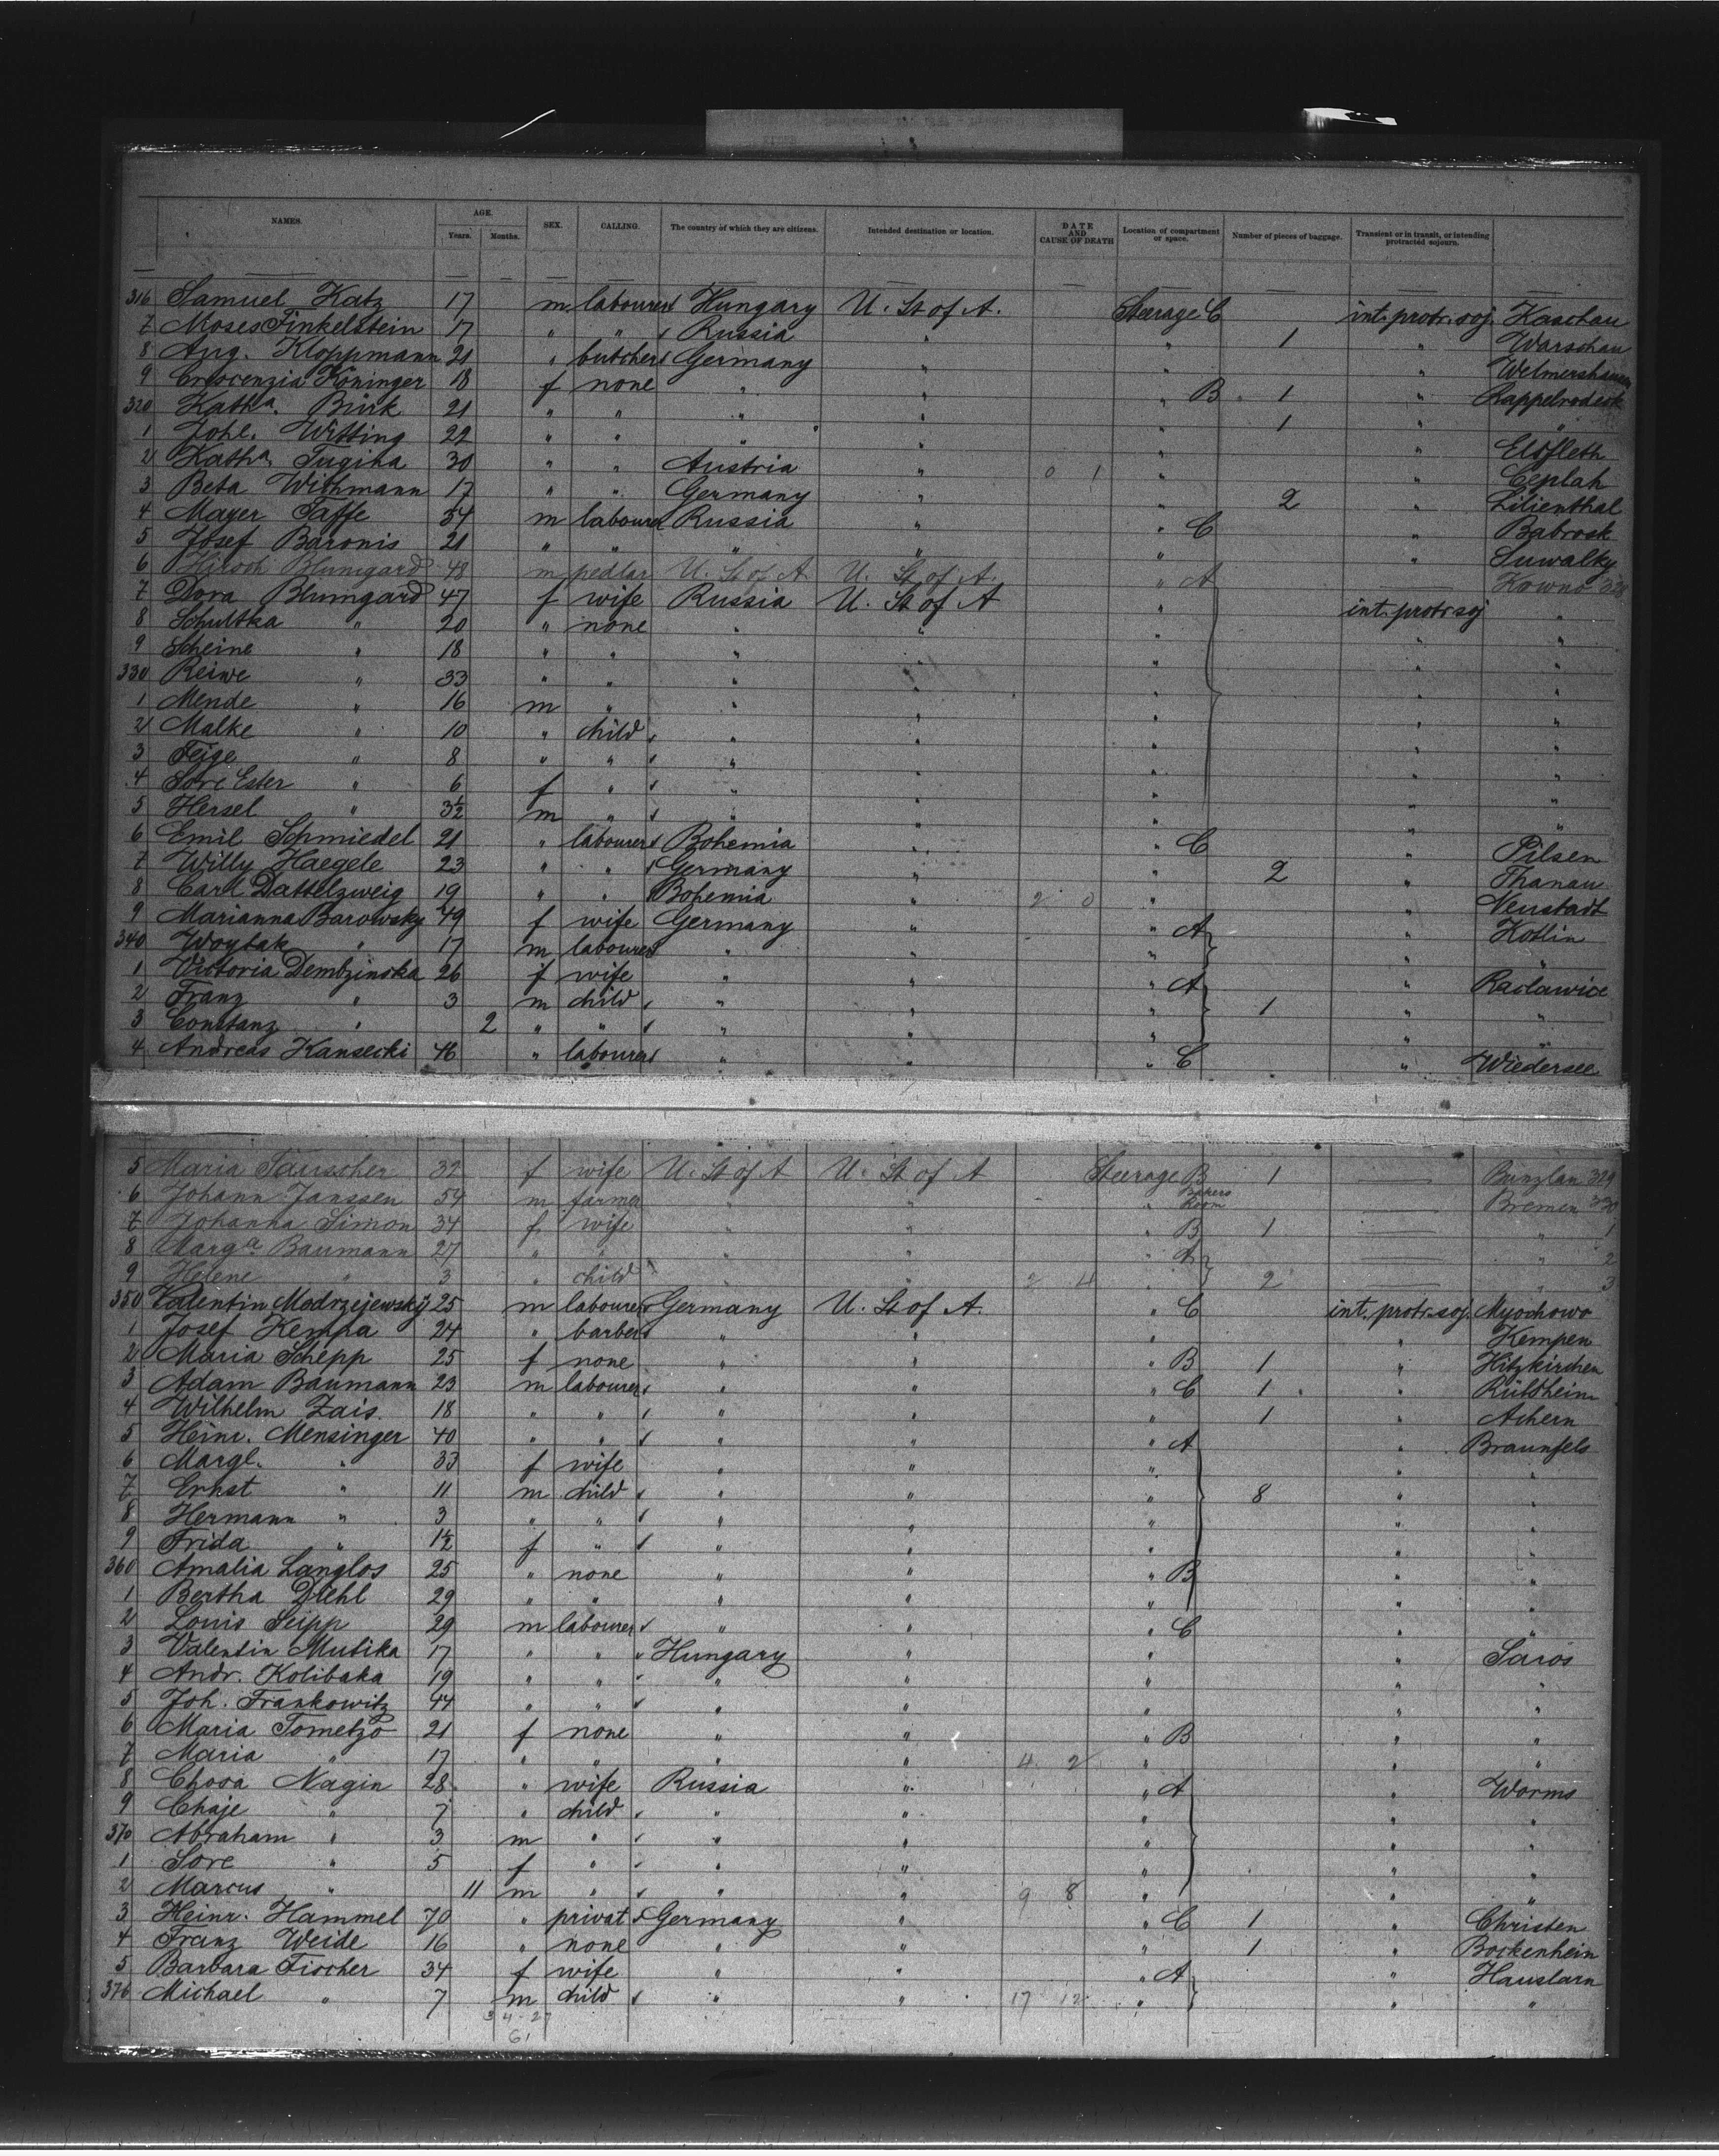 NAMES. AGE. Years. Months. SEX. CALLING. The country of which they are citizens. Intended destination or location. DATE AND CAUSE OF DEATH Location of compartment or space. Number of pieces of baggage. Transient or in transit, or intending protracted sojourn.
316 Samuel Katz 17 m labourer Hungary U. St of A. Steerage C int. protr. soj. Kaschau
7 Moses Finkelstein 17 " " Russia " " 1 " Warschau
8 Aug. Kloppmann 21 " butcher Germany " " " Welmershausen
9 Crescenzia Köninger 18 f none " " " B 1 " Kappelrodeck
320 Katha. Birk 21 " " " " " 1 " "
1 Johe. Witting 22 " " " " " " Elsfleth
2 Katha. Tugina 30 " " Austria " 0 1 " " Ceplah
3 Beta Withmann 17 " " Germany " " 2 " Lilienthal
4 Mayer Taffe 34 m labourer Russia " " C " Babrosk
5 Josef Baronis 21 " " " " " " Suwalky
6 Hirsch Blumgard 48 m pedlar U. St of A. U. St of A. " A Kowno 328
7 Dora Blumgard 47 f wife Russia U. St of A " int. protr. soj "
8 Schultka " 20 " none " " " " "
9 Scheine " 18 " " " " " " "
330 Reiwe " 33 " " " " " " "
1 Mende " 16 m " " " " " "
2 Malke " 10 " child " " " " "
3 Feige " 8 " " " " " " "
4 Sore Ester " 6 f " " " " " "
5 Hersel " 3½ m " " " " " "
6 Emil Schmiedel 21 " labourer Bohemia " " C " Pilsen
7 Willy Haegele 23 " " Germany " " 2 " Thanau
8 Carl Dattelzweig 19 " " Bohemia " 2 0 " " Neustadt
9 Marianna Barowsky 49 f wife Germany " " A " Kotlin
340 Woytak " 17 m labourer " " " " "
1 Victoria Dembzinska 26 f wife " " " A " Raclawice
2 Franz " 3 m child " " " 1 " "
3 Constanz " 2 " " " " " " "
4 Andreas Kansecki 46 " labourer " " " C " Wiedersee
5 Maria Täuscher 32 f wife U. St of A U. St of A Steerage B 1 Bunzlau 329
6 Johann Janssen 54 m farmer " " " Bakers Room Bremen 330
7 Johanna Simon 34 f wife " " " B 1 " 1
8 Marga. Baumann 27 " " " " " A " 2
9 Helene " 3 " child " " 2 4 " 2 " 3
350 Valentin Modrzejewskÿ 25 m labourer Germany U. St of A. " C int. protr. soj. Myochowo
1 Josef Kempa 24 " barber " " " " Kempen
2 Maria Schepp 25 f none " " " B 1 " Hitzkirchen
3 Adam Baumann 23 m labourer " " " C 1 " Rülsheim
4 Wilhelm Zais 18 " " " " " 1 " Achern
5 Heinr. Mensinger 40 " " " " " A " Braunfels
6 Margl. " 33 f wife " " " " "
7 Ernst " 11 m child " " " 8 " "
8 Hermann " 3 " " " " " " "
9 Frida " 1½ f " " " " " "
360 Amalia Langlos 25 " none " " " B " "
1 Bertha Diehl 29 " " " " " " "
2 Louis Seipp 29 m labourer " " " C " "
3 Valentin Mutika 17 " " Hungary " " " Saros
4 Andr. Kolibaka 19 " " " " " " "
5 Joh. Frankowitz 44 " " " " " " "
6 Maria Tometzo 21 f none " " " B " "
7 Maria " 17 " " " " 4 2 " " "
8 Chosa Nagin 28 " wife Russia " " A " Worms
9 Chaje " 7 " child " " " " "
370 Abraham " 3 m " " " " " "
1 Sore " 5 f " " " " " "
2 Marcus " 11 m " " " 9 8 " " "
3 Heinr. Hammel 70 " privat Germany " " C 1 " Christen
4 Franz Weide 16 " none " " " 1 " Bockenheim
5 Barbara Fischer 34 f wife " " " A " Hauslarn
376 Michael " 7 m child " " 17 12 " " "
34 - 27
61